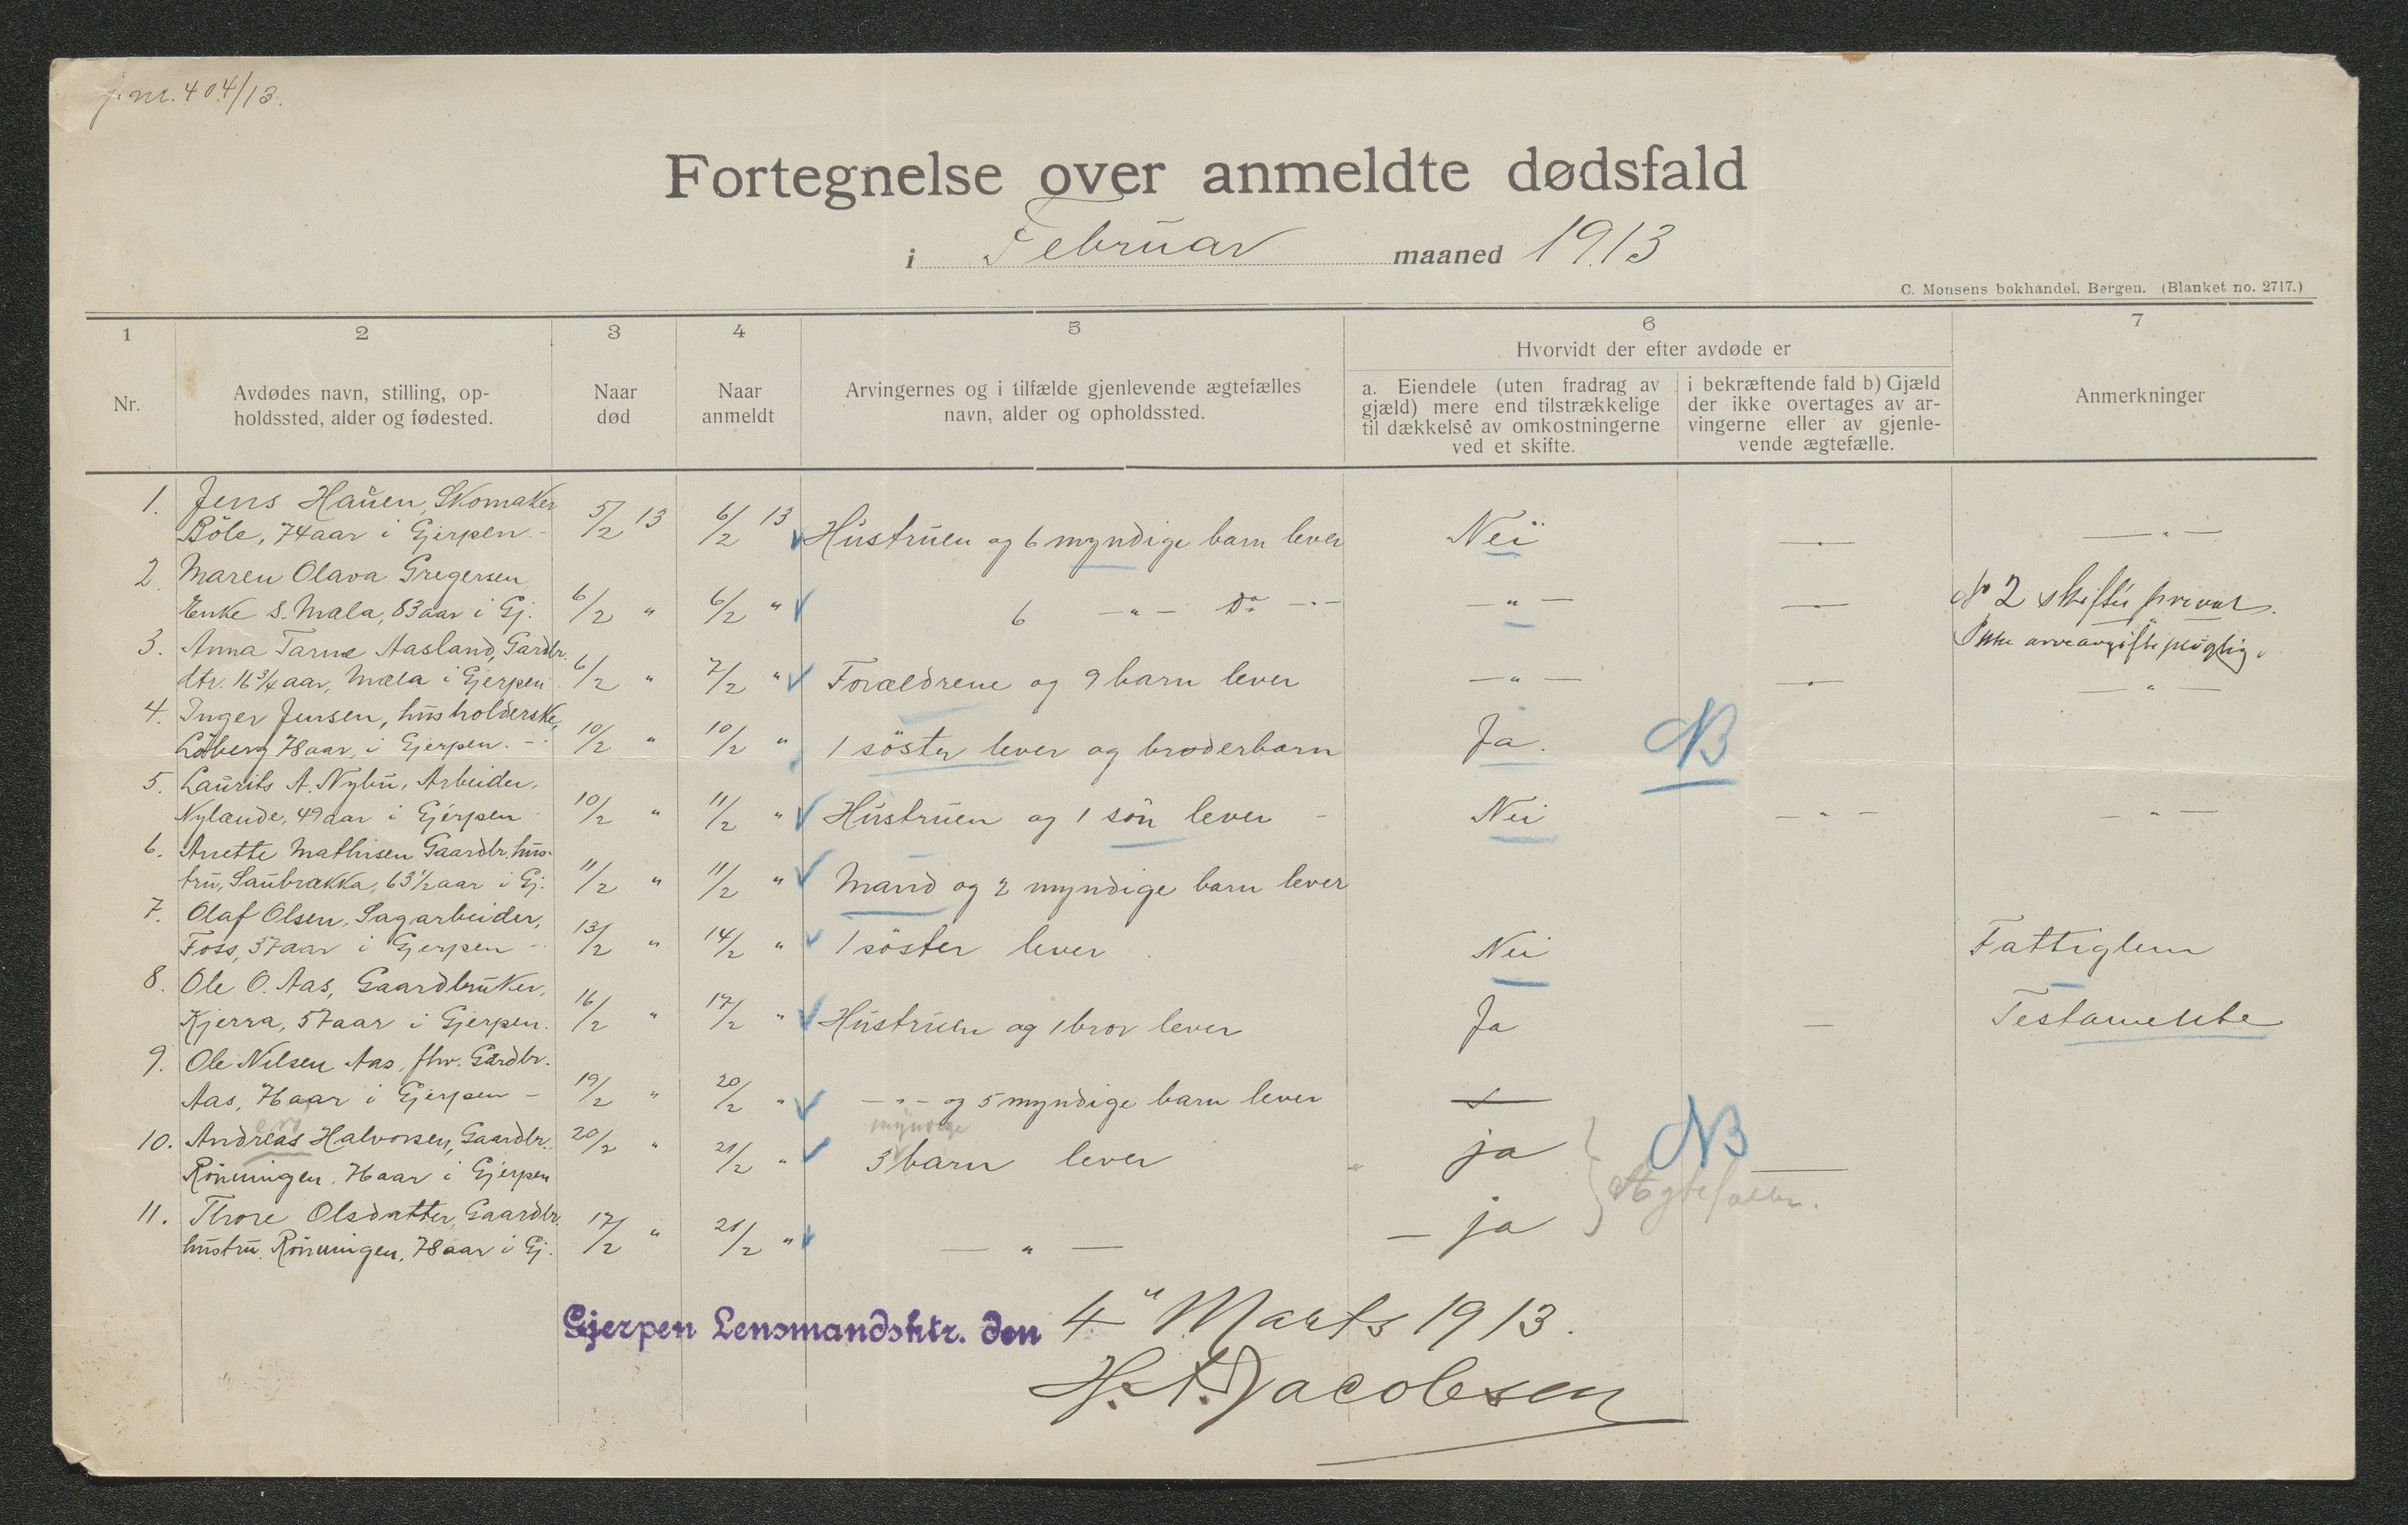 j. nr. 404/13.
Fortegnelse over anmeldte dødsfald
i Februar maaned 1913
C. Monsens bokhandel, Bergen. (Blanket no. 2717.)
1 2 3 4 5 6 7
Nr.
Avdødes navn, stilling, op-
holdssted, alder og fødested.
Naar
død
Naar
anmeldt
Arvingernes og i tilfælde gjenlevende ægtefælles
navn, alder og opholdssted.
Hvorvidt der efter avdøde er
a. Eiendele (uten fradrag av
gjæld) mere end tilstrækkelige
til dækkelse av omkostningerne
ved et skifte.
i bekræftende fald b) Gjæld
der ikke overtages av ar-
vingerne eller av gjenle-
vende ægtefælle.
Anmerkninger
1. Jens Hauen, Skomaker
Böle, 74 aar i Gjerpen. - 5/2 13 6/2 13 Hustruen og 6 myndige barn lever Nei — —"—
2. Maren Olava Gregersen
Enke S. Mæla, 83 aar i Gj. 6/2 " 6/2 " 6 —"— Do —"— —"— — No 2 skiftes privat.
Ikke arveavgiftspligtig.
3. Anna Tarine Aasland, Gardbr.
dtr. 16 3/4 aar, Mæla i Gjerpen 6/2 " 7/2 " Forældrene og 9 barn lever —"— — —"—
4. Inger Jensen, husholderske,
Löberg 78 aar, i Gjerpen. - 10/2 " 10/2 " 1 söster lever og broderbarn Ja. NB
5. Laurits A. Nybu, Arbeider,
Nylænde, 49 aar i Gjerpen 10/2 " 11/2 " Hustruen og 1 sön lever - Nei —"— —"—
6. Anette Mathisen Gaardbr. hus-
tru, Saubrækka, 63 1/2 aar i Gj. 11/2 " 11/2 " Mand og 2 myndige barn lever
7. Olaf Olsen, Sagarbeider,
Foss, 57 aar i Gjerpen - 13/2 " 14/2 " 1 söster lever. Nei Fattiglem
8. Ole O. Aas, Gaardbruker,
Kjerra, 57 aar i Gjerpen. 16/2 " 17/2 " Hustruen og 1 bror lever Ja — Testamente
9. Ole Nilsen Aas, fhv. Gardbr.
Aas, 76 aar i Gjerpen - 19/2 " 20/2 " —"— og 5 myndige barn lever —
10. Andreas Halvorsen, Gaardbr. 20/2 " 21/2 " myndige
3 barn lever " ja NB —
Rönningen, 76 aar i Gjerpen
Ægtefæller.
11. Thore Olsdatter, Gaardbr.
hustru. Rönningen, 78 aar i Gj. 17/2 " 21/2 " —"— — ja
Gjerpen Lensmandsktr. den 4" Marts 1913.
H. A. Jacobsen